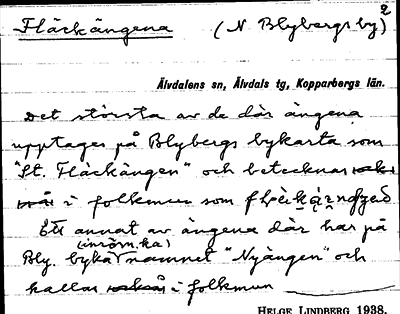 2
Fläckängena (N Blybergs by)
Älvdalens sn, Älvdals tg, Kopparbergs län.
Det största av de där ängena
upptages på Blybergs bykarta som
"St. Fläckängen" och betecknas
i folkmun som
Ett annat av ängena där har på
(inröm.ka)
Bly. byka namnet "Nyängen" och
kallas i folkmun
HELGE LINDBERG 1938.